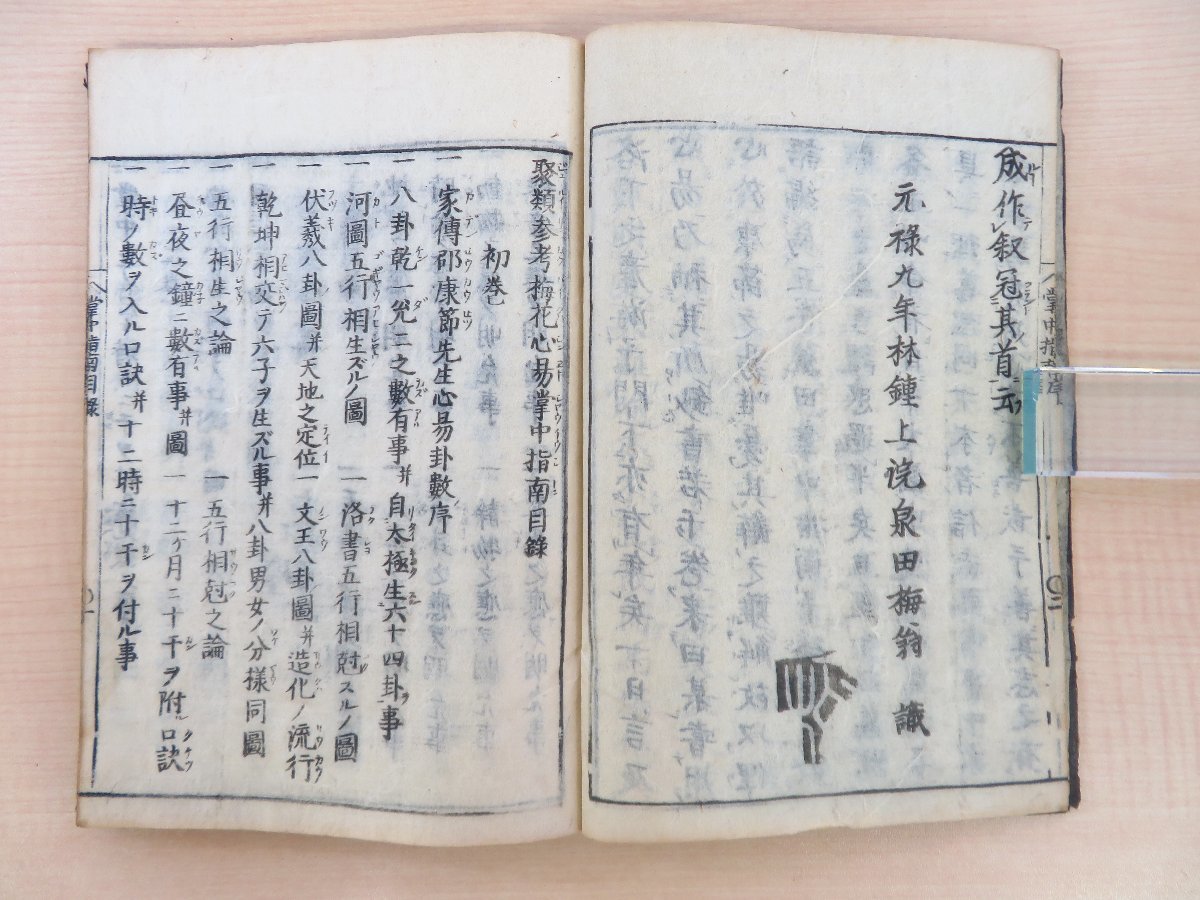 成作叙冠其首云
元禄九年林鐘上浣泉田梅翁識
聚類参考梅花心易掌中指南目録
初巻
一 家傳邵康節先生心易卦數序
一 八卦乾一兊二之數有事并自太極生六十四卦事
一 河圖五行相生ズルノ圖 一 洛書五行相尅スルノ圖
一 伏羲八卦圖并天地之定位 一 文王八卦圖并造化ノ流行
一 乾坤相交テ六子ヲ生ズル事并八卦男女ノ分様同圖
一 五行相生之論 一 五行相尅之論
一 昼夜之鐘ニ數有事并圖 一 十二ヶ月ニ十干ヲ附ル口訣
一 時ノ數ヲ入ル口訣并十二時ニ十干ヲ付ル事